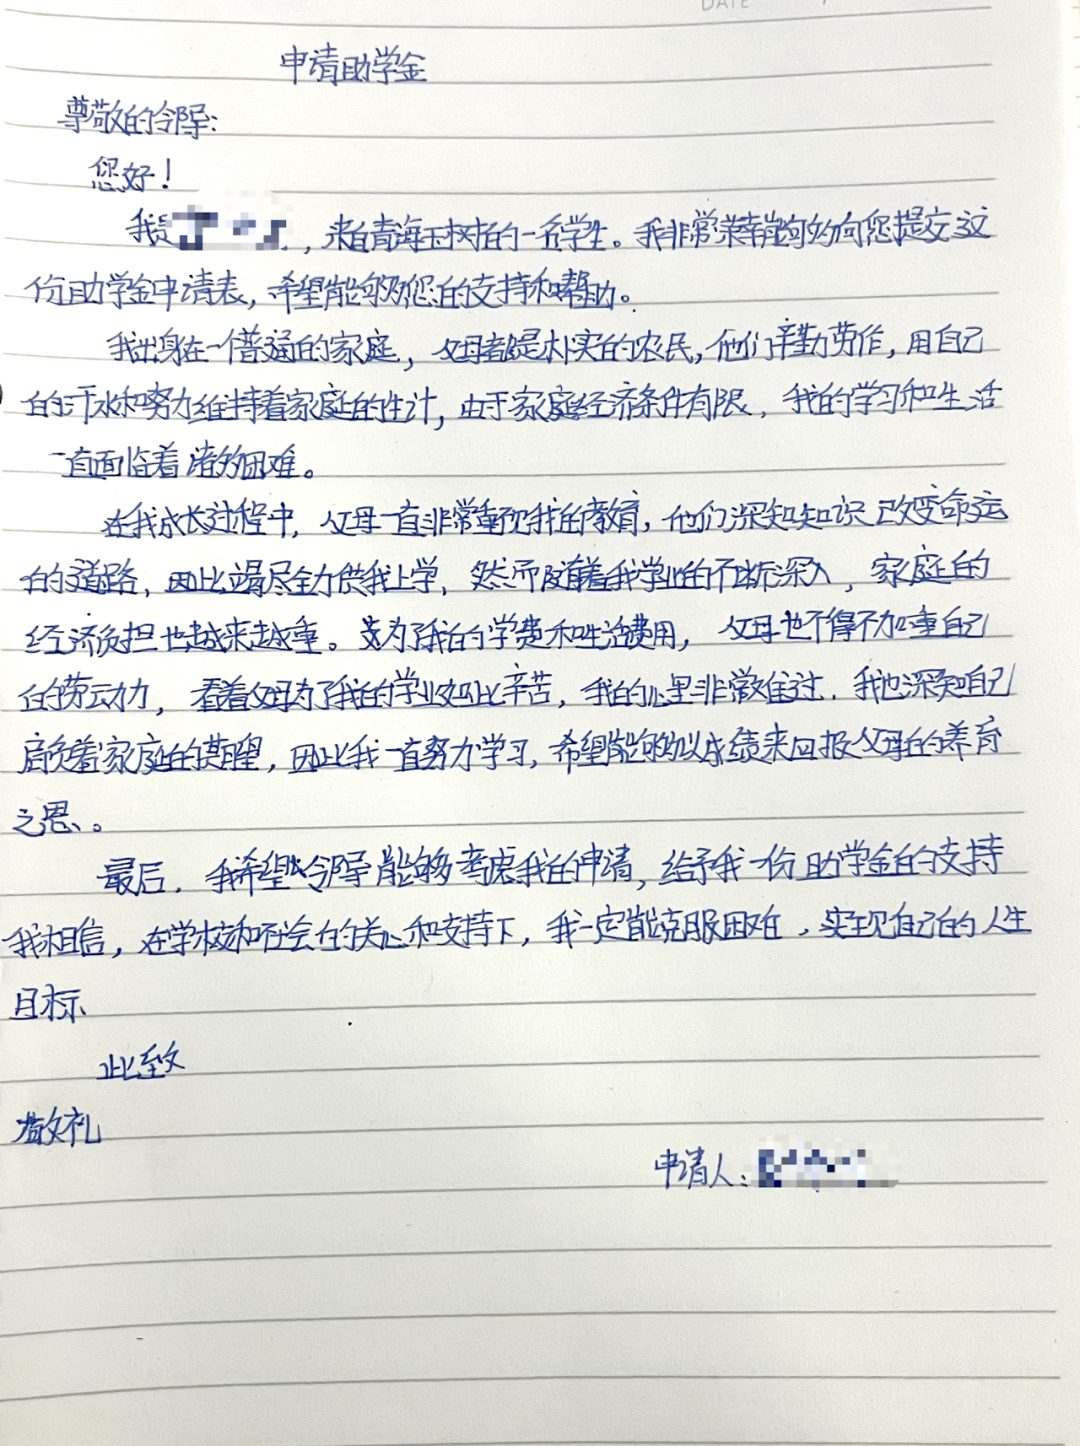 DATE
申请助学金
尊敬的领导:
您好!
我是 ,来自青海玉树的一名学生。我非常荣幸能够的向您提交这
份助学金申请表,希望能够及您的支持和帮助。
我出身在一个普通的家庭,父母都是朴实的农民,他们辛勤劳作,用自己
的汗水和努力维持着家庭的生计,由于家庭经济条件有限,我的学习和生活
一直面临着诸多困难。
在我成长过程中,父母一直非常重视我的教育,他们深知知识改变命运
的道路,因此竭尽全力供我上学,然而随着我学业的不断深入,家庭的
经济负担也越来越重。为了我的学费和生活费用,父母也不得不加重自己
的劳动力,看着父母为了我的学业如此辛苦,我的心里非常难过.我也深知自己
肩负着家庭的期望,因此我一直努力学习,希望能够以成绩来回报父母的养育
之恩、。
最后.我希望领导能够考虑我的申请,给予我一份助学金的支持
我相信,在学校和社会的关心和支持下,我一定能克服困难,实现自己的人生
目标
此致
敬礼
申请人: